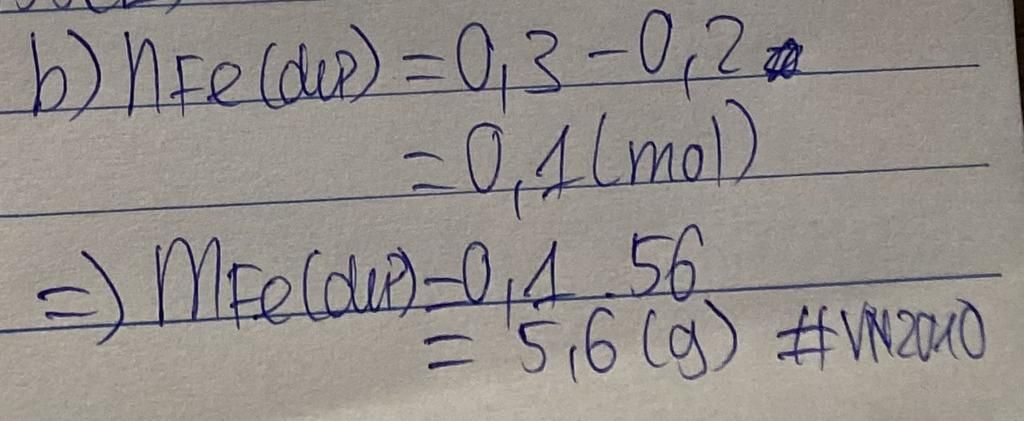 b) nFe(dư) = 0,3 - 0,2
= 0,1 (mol)
=) mFe(dư) = 0,1 . 56
= 5,6 (g) #VN2010